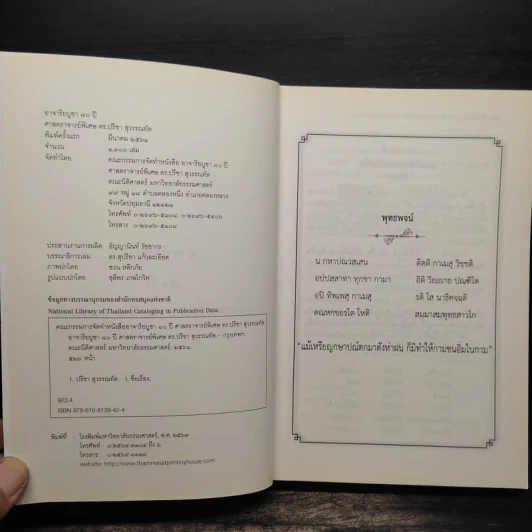 อาจาริยบูชา ๘๐ ปี
ศาสตราจารย์พิเศษ ดร.ปรีชา สุวรรณทัต
พิมพ์ครั้งแรก มีนาคม ๒๕๖๑
จำนวน ๑,๓๐๐ เล่ม
จัดทำโดย คณะกรรมการจัดทำหนังสือ อาจาริยบูชา ๘๐ ปี
ศาสตราจารย์พิเศษ ดร.ปรีชา สุวรรณทัต
คณะนิติศาสตร์ มหาวิทยาลัยธรรมศาสตร์
๙๙ หมู่ ๑๘ ตำบลคลองหนึ่ง อำเภอคลองหลวง
จังหวัดปทุมธานี ๑๒๑๒๑
โทรศัพท์
โทรสาร
ประสานงานการผลิต ธัญญานันท์ รัชยากร
บรรณาธิการเล่ม ดร.สุปรียา แก้วละเอียด
ภาพปกโดย ชวน หลีกภัย
รูปแบบปกโดย ชุติพร เกษไกรวิท
ข้อมูลทางบรรณานุกรมของสำนักหอสมุดแห่งชาติ
National Library of Thailand Cataloging in Publication Data
คณะกรรมการจัดทำหนังสืออาจาริยบูชา ๘๐ ปี ศาสตราจารย์พิเศษ ดร.ปรีชา สุวรรณทัต
อาจาริยบูชา ๘๐ ปี ศาสตราจารย์พิเศษ ดร.ปรีชา สุวรรณทัต.-- กรุงเทพฯ:
คณะนิติศาสตร์ มหาวิทยาลัยธรรมศาสตร์, ๒๕๖๑.
๕๒๖ หน้า.
1. ปรีชา สุวรรณทัต. I. ชื่อเรื่อง.
923.4
ISBN 978-616-8139-42-4
พิมพ์ที่ : โรงพิมพ์มหาวิทยาลัยธรรมศาสตร์, พ.ศ. ๒๕๖๑
โทรศัพท์
โทรสาร
website: http://www.thammasatprintinghouse.com
พุทธพจน์
น กหาปณวสฺเสน ติตฺติ กาเมสุ วิชฺชติ
อปฺปสฺสาทา ทุกฺขา กามา อิติ วิญฺญาย ปณฺฑิโต
อปิ ทิพฺเพสุ กาเมสุ รตึ โส นาธิคจฺฉติ
ตณฺหกฺขยรโต โหติ สมฺมาสมฺพุทฺธสาวโก
"แม้เหรียญกษาปณ์ตกมาดั่งห่าฝน ก็มิทำให้กามชนอิ่มในกาม"